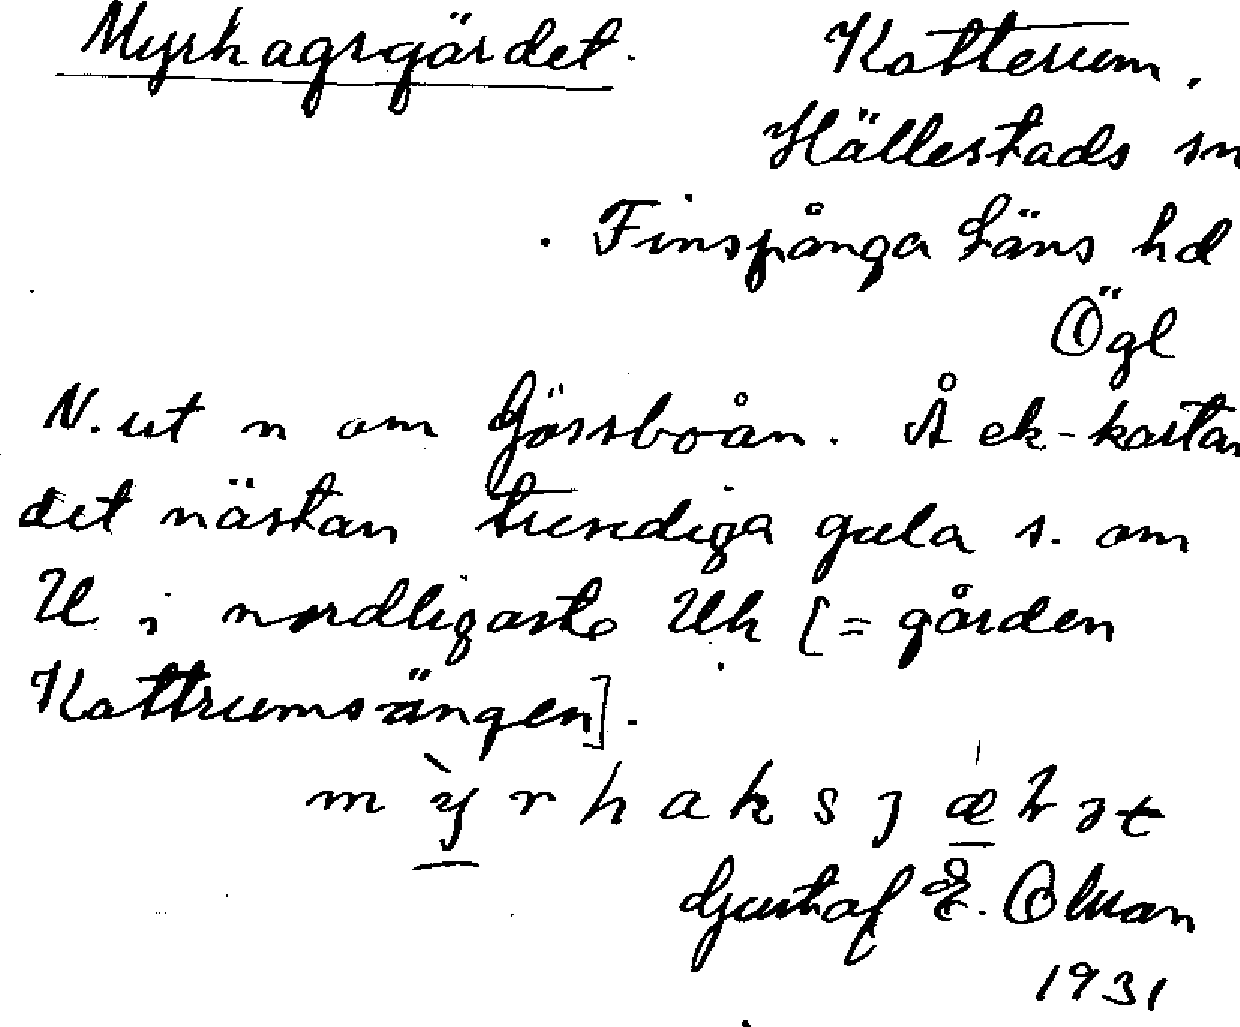 Myrhagsgärdet. Katterum.
Hällestads sn
Finspånga Läns hd
Ögl
N. ut n om Gössboån. Å ek-kartan
det nästan tresidiga gula s. om
U i nordligaste Uh [= gården
Kattrumsängen].
Gustaf E. Olman
1931